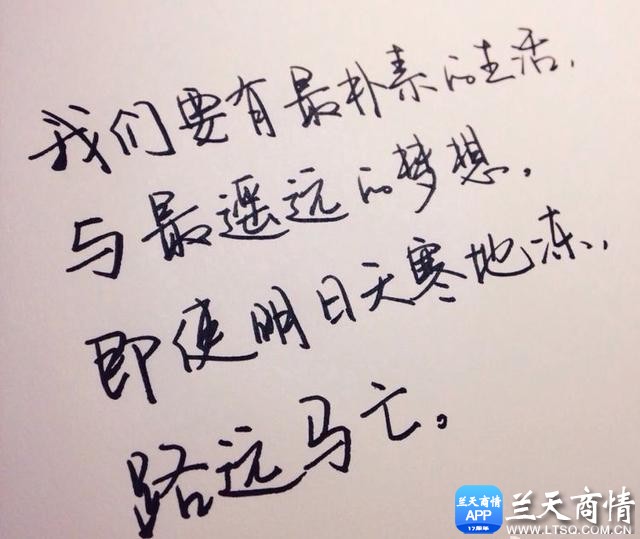 我们要有最朴素的生活,
与最遥远的梦想。
即使明日天寒地冻,
路远马亡。
兰天商情
APP
17周年
兰天商情
WWW.LTSQ.COM.CN